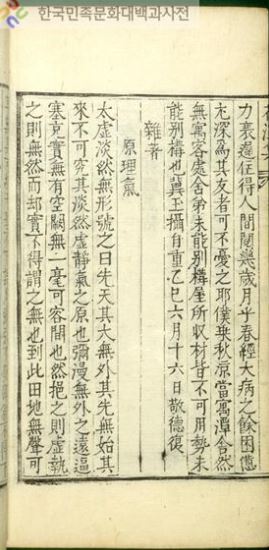 한국민족문화대백과사전
力衰還征得人間閱幾歲月乎春經大病之餘困憊
尤深為其友者可不憂之耶僕乘秋凉當寓潭舍然
無寓客處舍弟未能別構屋所収材皆不可用勢未
能別構也冀玉攝自重乙巳六月十六日敬德復
雜著
原理氣
太虛淡然無形號之曰先天其大無外其先無始其
來不可究其淡然虛靜氣之原也彌漫無外之遠逼
塞充實無有空闕無一毫可容間也然挹之則虛執
之則無然而却實不得謂之無也到此田地無聲可